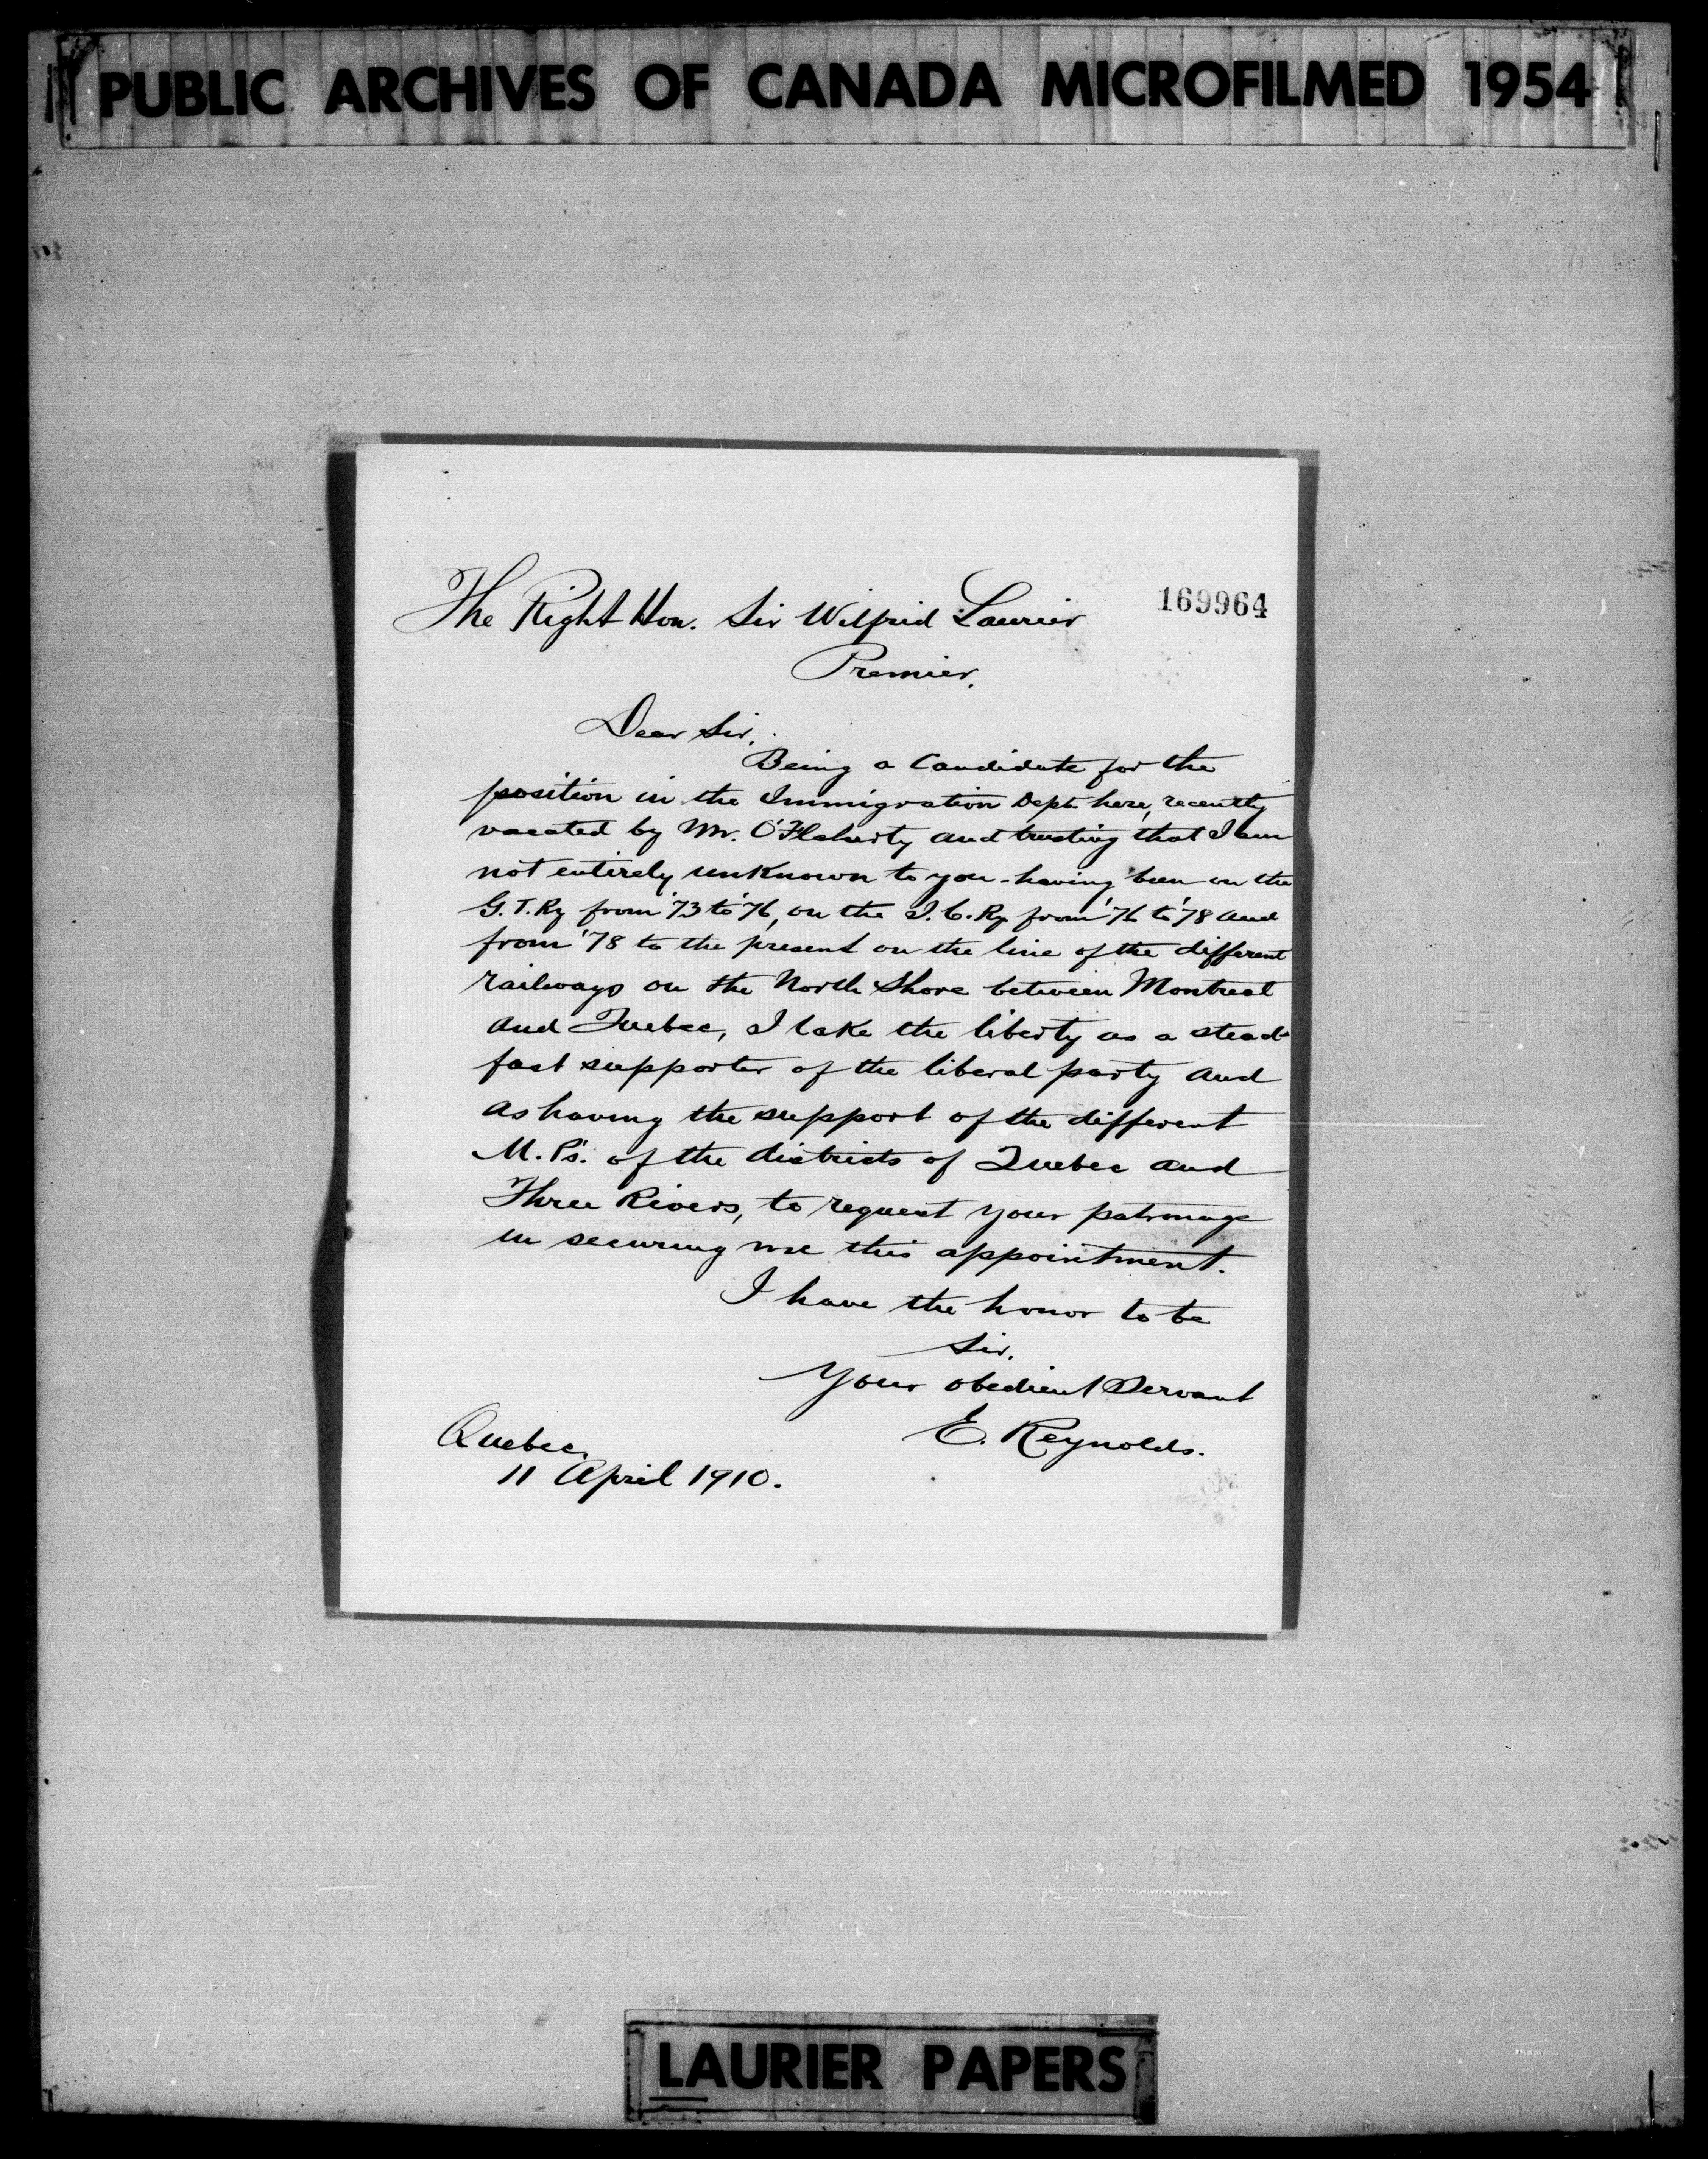 PUBLIC ARCHIVES OF CANADA MICROFILMED 1954
169964
The Right Hon. Sir Wilfrid Laurier
Premier.
Dear Sir,
Being a Candidate for the
position in the Immigration Dept. here, recently
vacated by Mr. O'Flaherty and trusting that I am
not entirely unknown to you - having been on the
G.T.Ry from '73 to '76, on the I.C.Ry from '76 to '78 and
from '78 to the present on the line of the different
railways on the North Shore between Montreal
and Quebec, I take the liberty as a stead-
fast supporter of the liberal party and
as having the support of the different
M.P's. of the districts of Quebec and
Three Rivers, to request your patronage
in securing me this appointment.
I have the honor to be
Sir.
Your obedient Servant
E. Reynolds.
Quebec,
11 April 1910.
LAURIER PAPERS